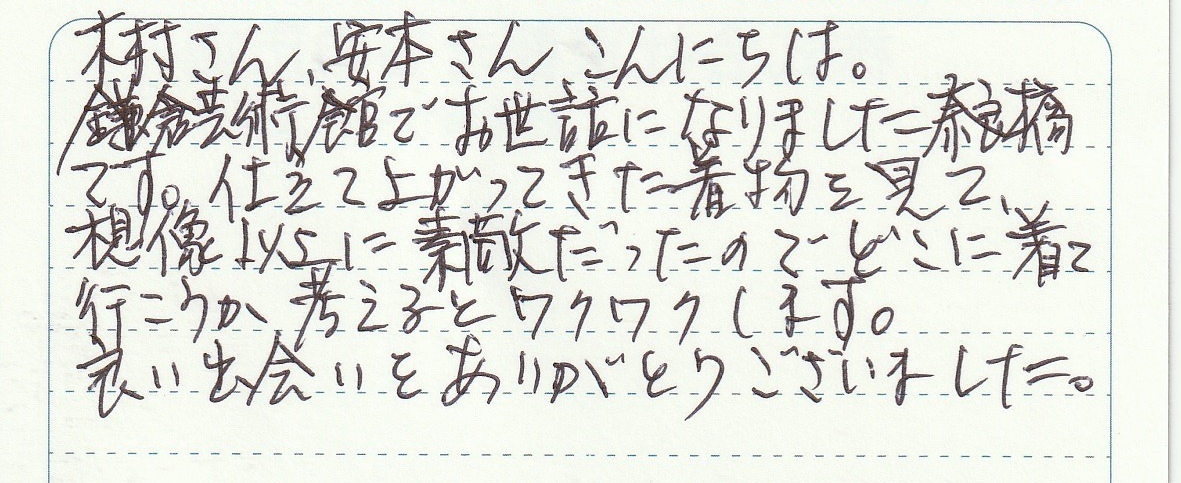 木村さん、安本さん こんにちは。
鎌倉芸術館でお世話になりました奈良橋
です。仕立て上がってきた着物を見て、
想像以上に素敵だったのでどこに着て
行こうか 考えるとワクワクします。
良い出会いをありがとうございました。